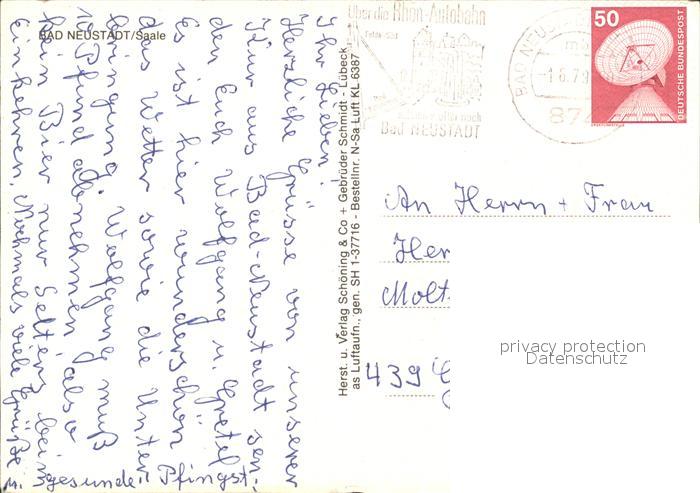 BAD NEUSTADT/Saale
Ihr Lieben!
Herzliche Grüsse von unserer
Kur aus Bad-Neustadt sen-
den Euch Wolfgang u. Gretel
Es ist hier wunderschön
das Wetter sowie die Unter
bringung. Wolfgang muß
10 Pfund abnehmen, also
kein Bier nur Selters beim
Einkehren. Nochmals viele Grüße
u. gesunde Pfingst.
Herst. u. Verlag Schöning & Co + Gebrüder Schmidt - Lübeck
as Luftaufn., gen. SH 1-37716 - Bestellnr. N-Sa Luft KL 6387
Über die Rhön-Autobahn
nach
Bad NEUSTADT
BAD NEU
-1.6.79
874
50
DEUTSCHE BUNDESPOST
An Herrn + Frau
Her
Molt
439
privacy protection
Datenschutz